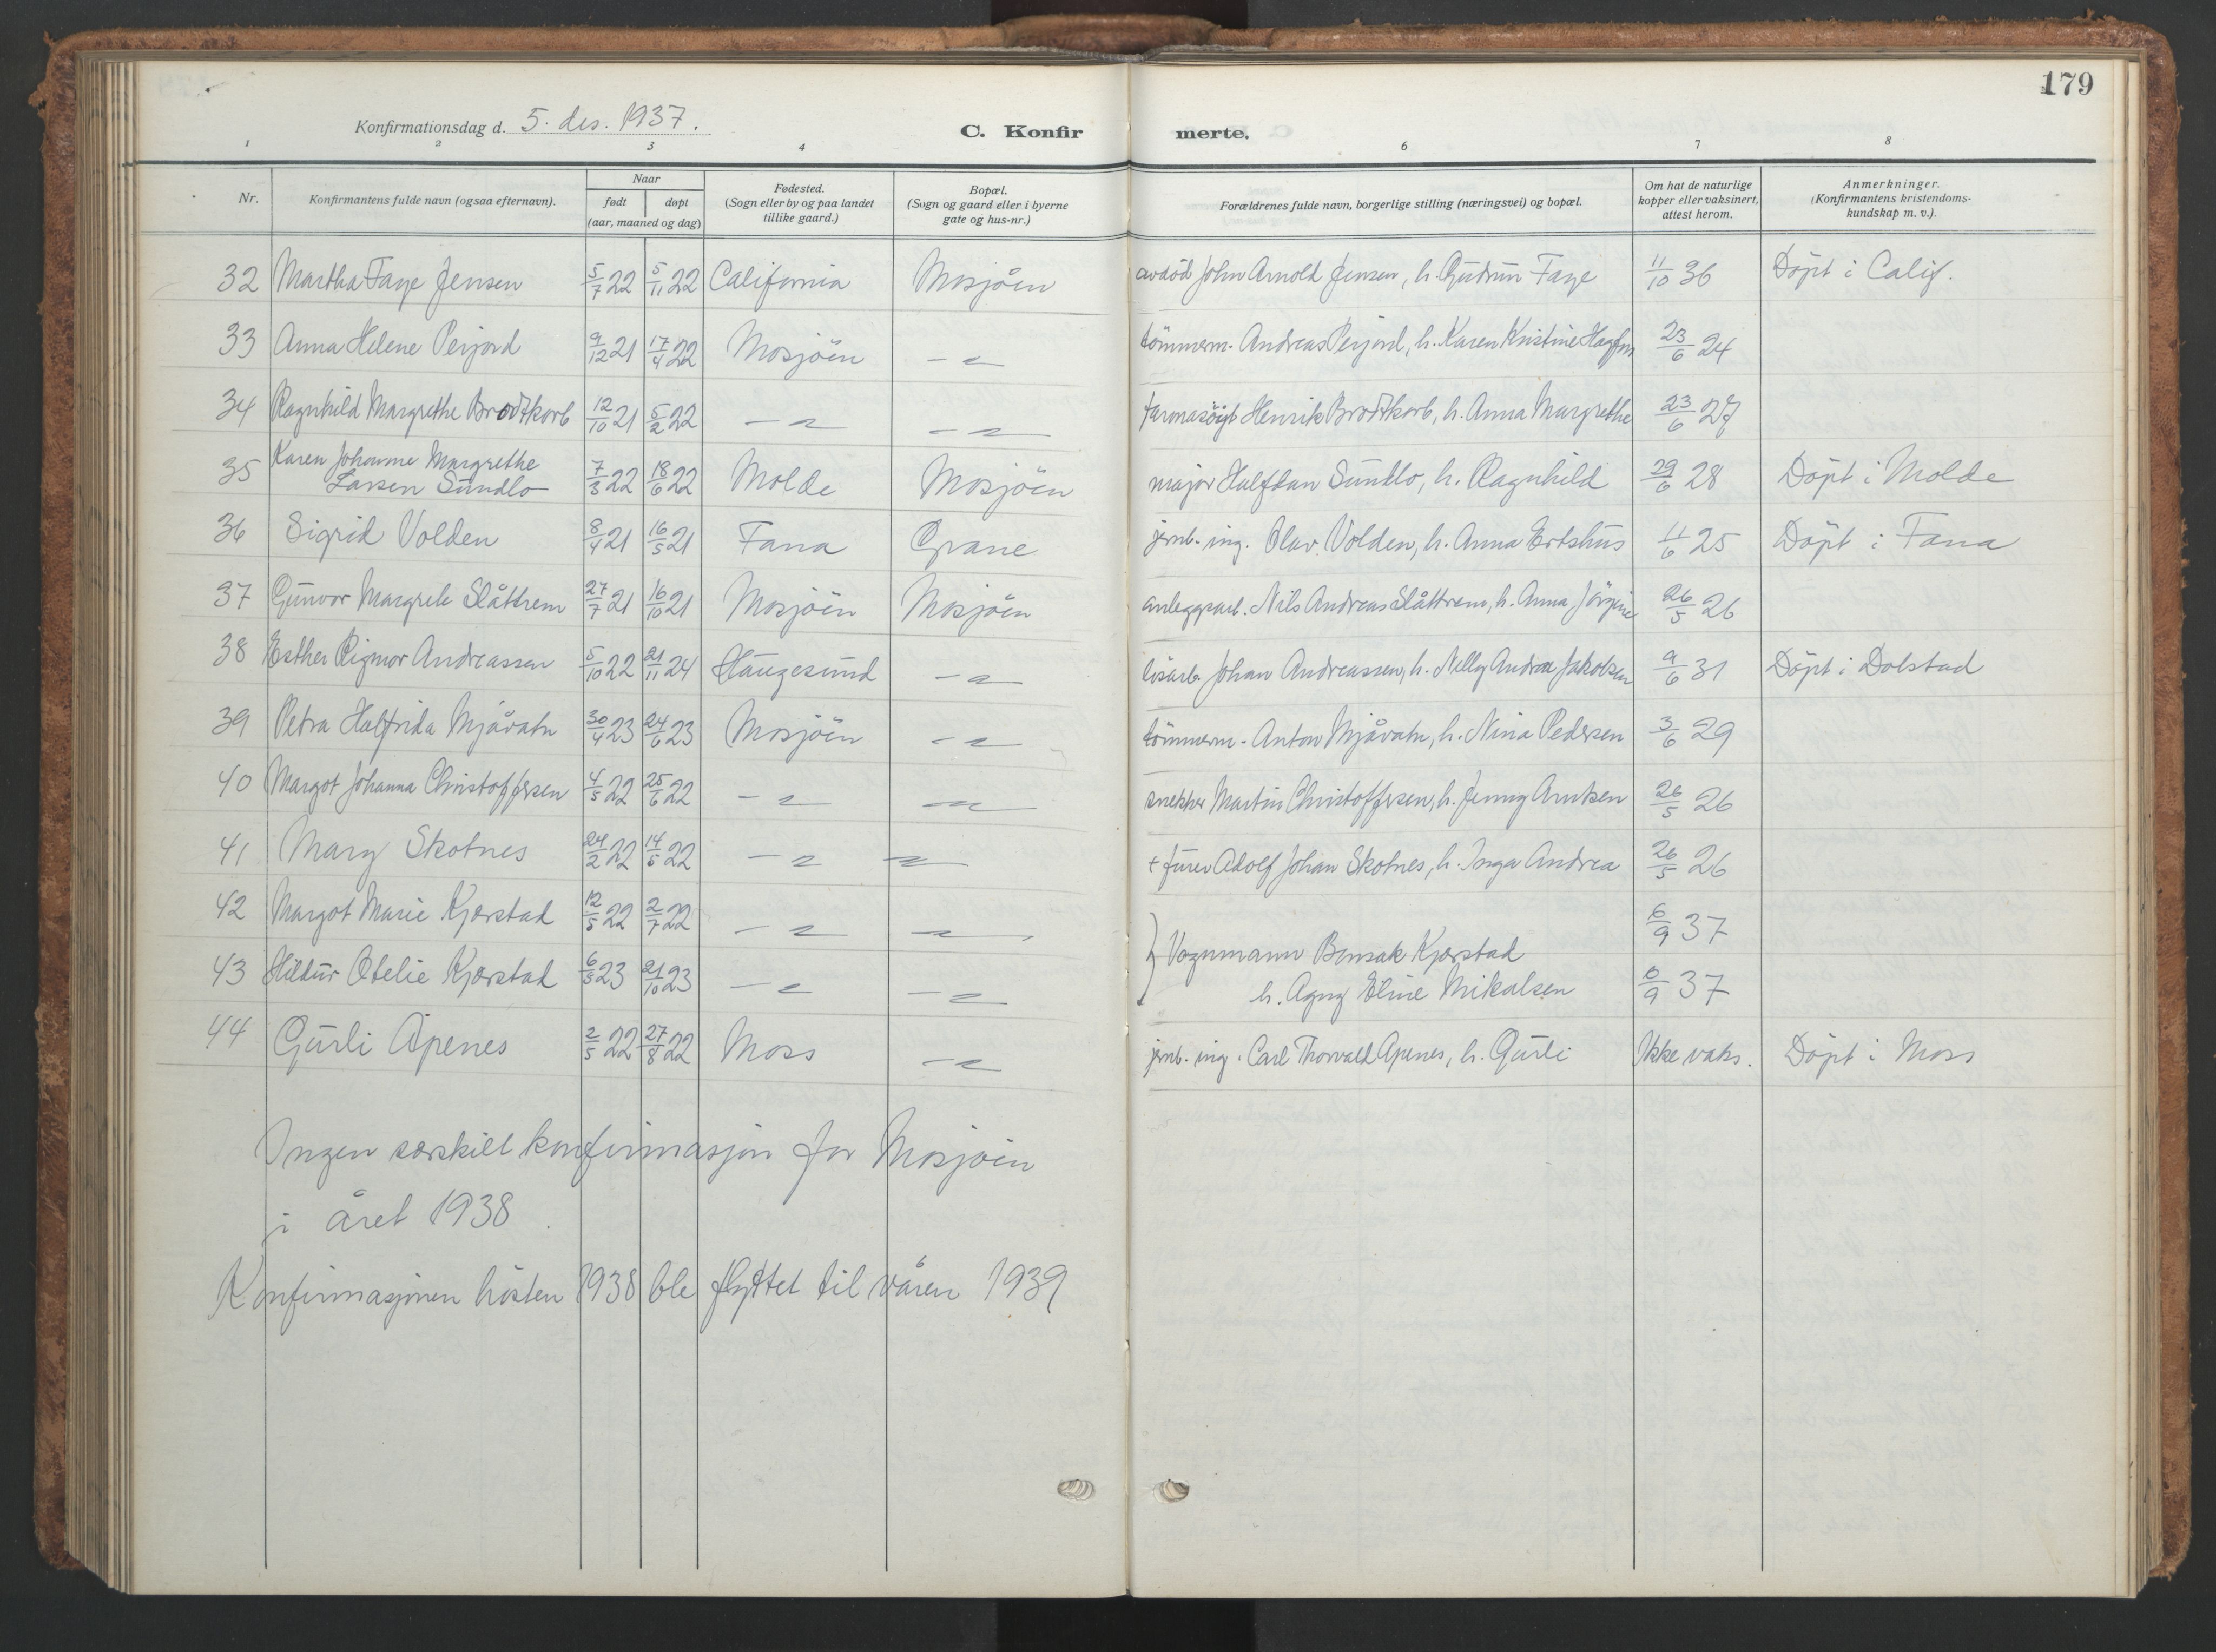 179
Konfirmationsdag d. 5. des. 1937.
C. Konfir merte.
1 2 3 4 6 7 8
Nr. Konfirmantens fulde navn (ogsaa efternavn). Naar født døpt (aar, maaned og dag) Fødested. (Sogn eller by og paa landet tillike gaard.) Bopæl. (Sogn og gaard eller i byerne gate og hus-nr.) Forældrenes fulde navn, borgerlige stilling (næringsvei) og bopæl. Om hat de naturlige kopper eller vaksinert, attest herom. Anmerkninger. (Konfirmantens kristendoms-kundskap m. v.).
32 Martha Faye Jensen 5/7 22 5/11 22 California Mosjöen avdöd John Arnold Jensen, h. Gudrun Faye 11/10 36 Döpt i Calif.
33 Anna Helene Perjord 9/12 21 17/4 22 Mosjöen — " — tömmerm. Andreas Perjord, h. Karen Kristine 23/6 24
34 Ragnhild Margrethe Brodtkorb 12/10 21 5/2 22 — " — — " — Henrik Brodtkorb, h. Anna Margrethe 23/6 27
35 Karen Johanne Margrethe
Larsen Sundlo 7/3 22 18/6 22 Molde Mosjöen major Halfdan Sundlo, h. Ragnhild 29/6 28 Döpt i Molde
36 Sigrid Volden 8/4 21 16/5 21 Fana Grane jernb. ing. Olav Volden, h. Anna Ertshus 11/6 25 Döpt i Fana
37 Gunvor Margrete Slåttrem 27/7 21 16/10 21 Mosjöen Mosjöen anleggsarb. Nils Andreas Slåttrem, h. Anna Jörgine 26/5 26
38 Esther Rigmor Andreassen 5/10 22 21/11 24 Haugesund — " — lösarb. Johan Andreassen, h. Nelly Andrea Jakobsen 9/6 31 Döpt i Dolstad
39 Petra Halfrida Mjåvatn 30/4 23 24/6 23 Mosjöen — " — tömmerm. Anton Mjåvatn, h. Nina Pedersen 3/6 29
40 Margot Johanna Christoffersen 4/5 22 25/6 22 — " — — " — snekker Martin Christoffersen, h. Jenny Arntsen 26/5 26
41 Mary Skotnes 24/2 22 14/5 22 — " — — " — + furer Adolf Johan Skotnes, h. Inga Andrea 26/5 26
42 Margot Marie Kjærstad 12/5 22 2/7 22 — " — — " — } Vognmann Bensak Kjærstad 6/9 37
43 Hildur Otelie Kjærstad 6/8 23 21/10 23 — " — — " — h. Agny Eline Mikalsen 6/9 37
44 Gurli Apenes 2/5 22 27/8 22 Moss — " — jernb. ing. Carl Thorvald Apenes, h. Gurli Ikke vaks. Döpt i Moss
Ingen særskilt konfirmasjon for Mosjöen
i året 1938.
Konfirmasjonen hösten 1938 ble flyttet til våren 1939